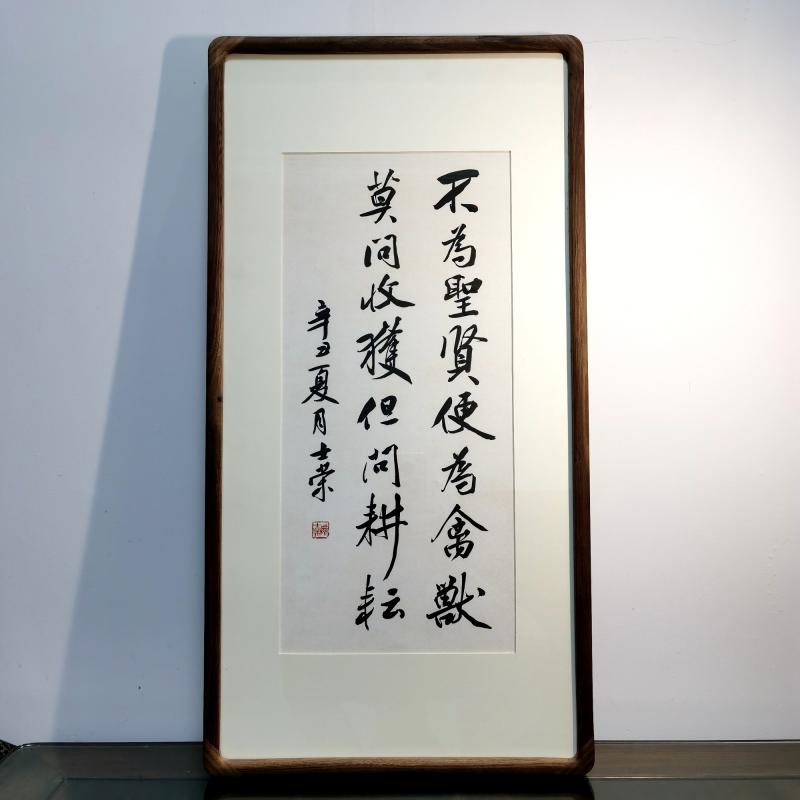 不為聖賢便為禽獸
莫問收獲但問耕耘
辛丑夏月士榮